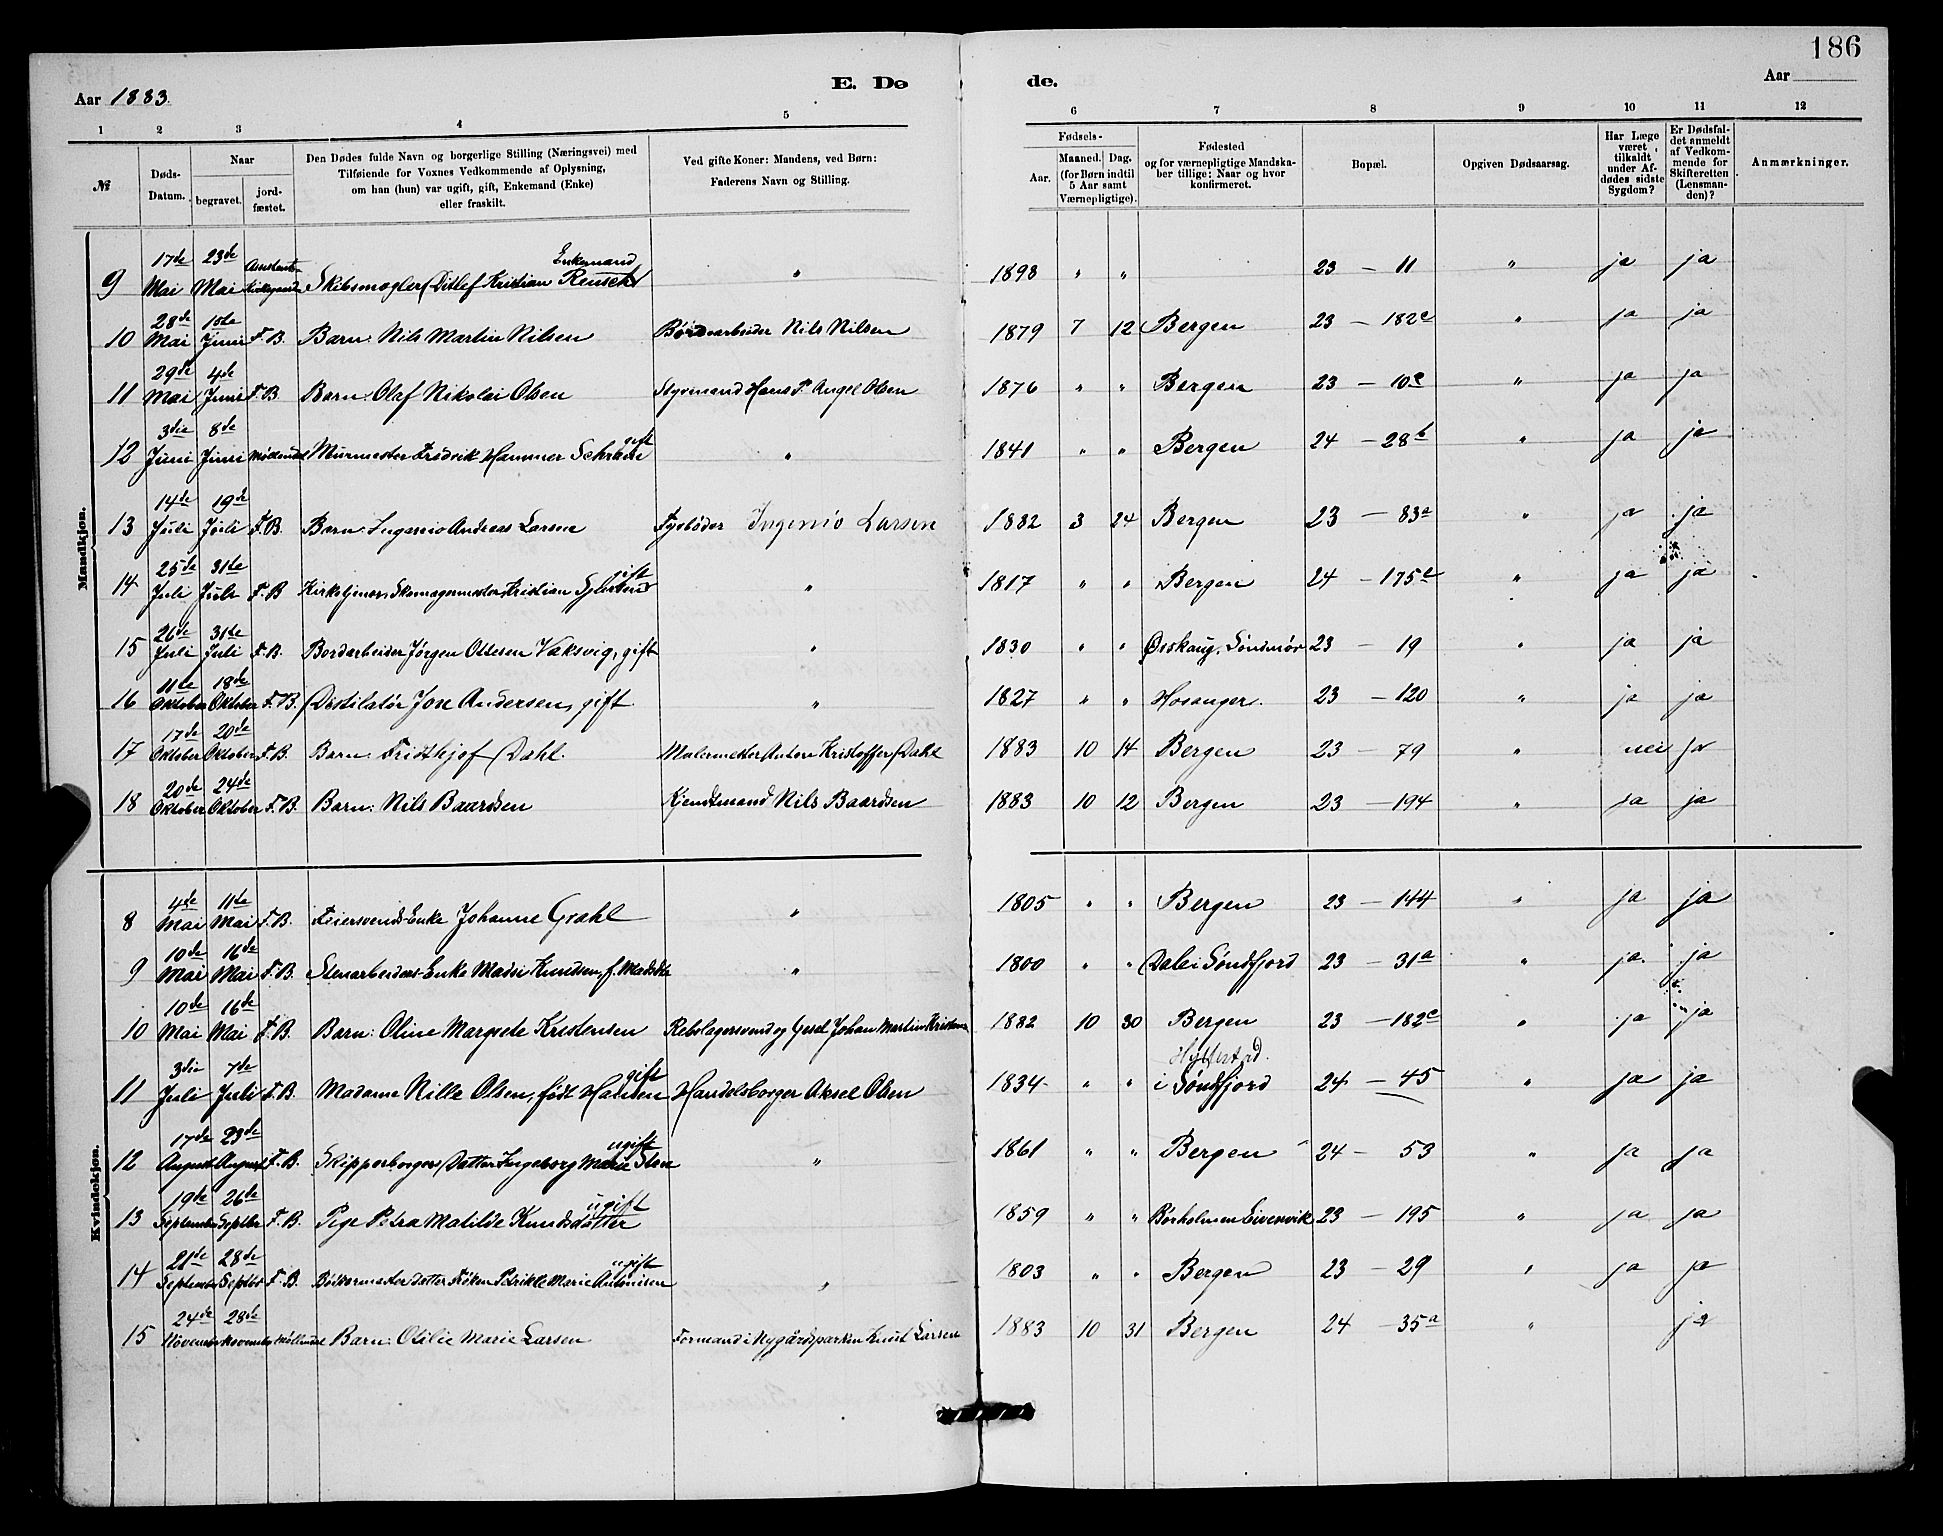 186
Aar 1883.
E. Dø
de.
Aar
1 2 3 4 5 6 7 8 9 10 11 12
№
Døds-Datum.
Naar
begravet.
jord-fæstet.
Den Dødes fulde Navn og borgerlige Stilling (Næringsvei) med
Tilføiende for Voxnes Vedkommende af Oplysning,
om han (hun) var ugift, gift, Enkemand (Enke)
eller fraskilt.
Ved gifte Koner: Mandens, ved Børn:
Faderens Navn og Stilling.
Fødsels-
Aar.
Maaned. Dag.
(for Børn indtil
5 Aar samt
Værnepligtige).
Fødested
og for værnepligtige Mandska-
ber tillige: Naar og hvor
konfirmeret.
Bopæl.
Opgiven Dødsaarsag.
Har Læge
været
tilkaldt
under Af-
dødes sidste
Sygdom?
Er Dødsfal-
det anmeldt
af Vedkom-
mende for
Skifteretten
(Lensman-
den)?
Anmærkninger.
Mandkjøn.
9 17de Mai 23de Mai Skibsmægler Ditlef Kristian Enkemand " 1898 " " 23 – 11 " ja ja
10 28de Mai 1ste Juni F.B. Barn: Nils Martin Nilsen Nils Nilsen 1879 7 12 Bergen 23 – 182c " ja ja
11 29de Mai 4de Juni F.B. Barn: Olaf Nikolai Olsen Styrmand Hans P. Angel Olsen 1876 " " Bergen 23 – 10e " ja ja
12 3die Juni 8de Juni Møllendal Murmester Fredrik Hammer gift " 1841 " " Bergen 24 – 28b " ja ja
13 14de Juli 19de Juli F.B. Barn: Ingenio Andreas Larsen Fyrbøder Ingenio Larsen 1882 3 24 Bergen 23 – 83a " ja ja
14 25de Juli 31te Juli F.B. Kirketjener, Skomagermester Kristian gift " 1817 " " Bergen 24 – 175e " ja ja
15 26de Juli 31te Juli F.B. Bordarbeider Jørgen Ottesen Vaksvig, gift " 1830 " " Ørskaug, Søndmør 23 – 19 " ja ja
16 11te Oktober 18de Oktober F.B. Destilatør Jon Andersen, gift " 1827 " " Hosanger. 23 – 120 " ja ja
17 17de Oktober 20de Oktober F.B. Barn: Fristhjof Dahl. Malermester Anton Kristoffer Dahl 1883 10 14 Bergen 23 – 79 " nei ja
18 20de Oktober 24de Oktober F.B. Barn: Nils Baardsen Kjendtmand Nils Baardsen 1883 10 12 Bergen 23 – 194 " ja ja
Kvindekjøn.
8 4de Mai 11te Mai F.B. Feiersvends Enke Johanne Grahl " 1805 " " Bergen 23 – 144 " ja ja
9 10de Mai 16de Mai F.B. Stenarbeiders Enke Madsi Knudsen, f. " 1800 " " Dale i Søndfjord 23 – 31a " ja ja
10 10de Mai 16de Mai F.B. Barn: Oline Margrete Kristensen Rebslagersvend og Johan Martin 1882 10 30 Bergen 23 – 182c " ja ja
11 3die Juli 7de Juli F.B. Madame Nille Olsen, født Hansen gift Handelsborger Aksel Olsen 1834 " " Hyllestad. i Søndfjord 24 – 45 " ja ja
12 17de August 23de August F.B. Skipperborgers Datter Ingeborg Marie ugift " 1861 " " Bergen 24 – 53 " ja ja
13 19de September 26de Septbr F.B. Pige Petra Matilde Knudsdatter ugift 1859 " " Eivenvik 23 – 195 " ja ja
14 21de September 28de Septbr F.B. Bødkermester datter Frøken Petrikke Marie ugift " 1803 " " Bergen 23 – 29 " ja ja
15 24de November 28de November Møllendal Barn: Otilie Marie Larsen Formand i Nygårdsparken Knut Larsen 1883 10 31 Bergen 24 – 35a " ja